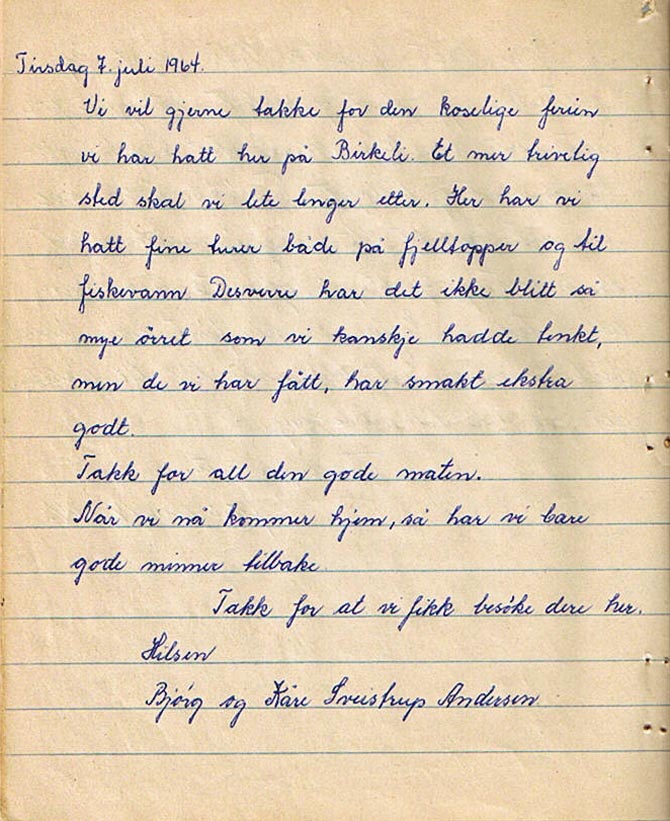 Tirsdag 7. juli 1964.
Vi vil gjerne takke for den koselige ferien
vi har hatt her på Birkeli. Et mer trivelig
sted skal vi lete lenger etter. Her har vi
hatt fine turer både på fjelltopper og til
fiskevann. Desverre har det ikke blitt så
mye örret som vi kanskje hadde tenkt,
men de vi har fått, har smakt ekstra
godt.
Takk for all den gode maten.
Når vi nå kommer hjem, så har vi bare
gode minner tilbake.
Takk for at vi fikk besöke dere her.
Hilsen
Bjórg og Kåre Sveistrup Andersen